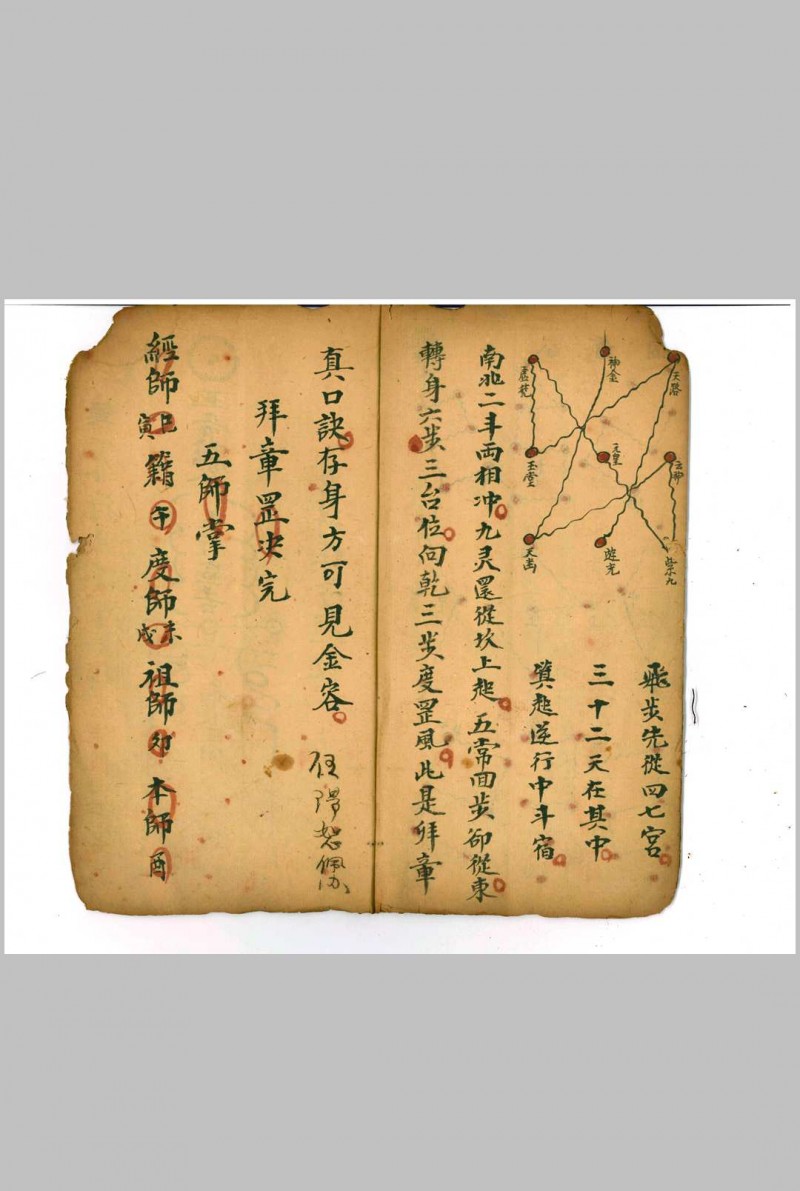 天蓬
神金
玉堂
天皇
遊光
飛步先從四七宮
三十二天在其中
巽起逆行中斗宿
南北二斗両相冲九灵還從坎上起五常回步卻從東
轉身六步三台位向乾三步度罡風此是拜章
真口訣存身方可見金容
拜章罡决完
五師掌
經師巳寅籍午度師未戌祖師卯本師酉